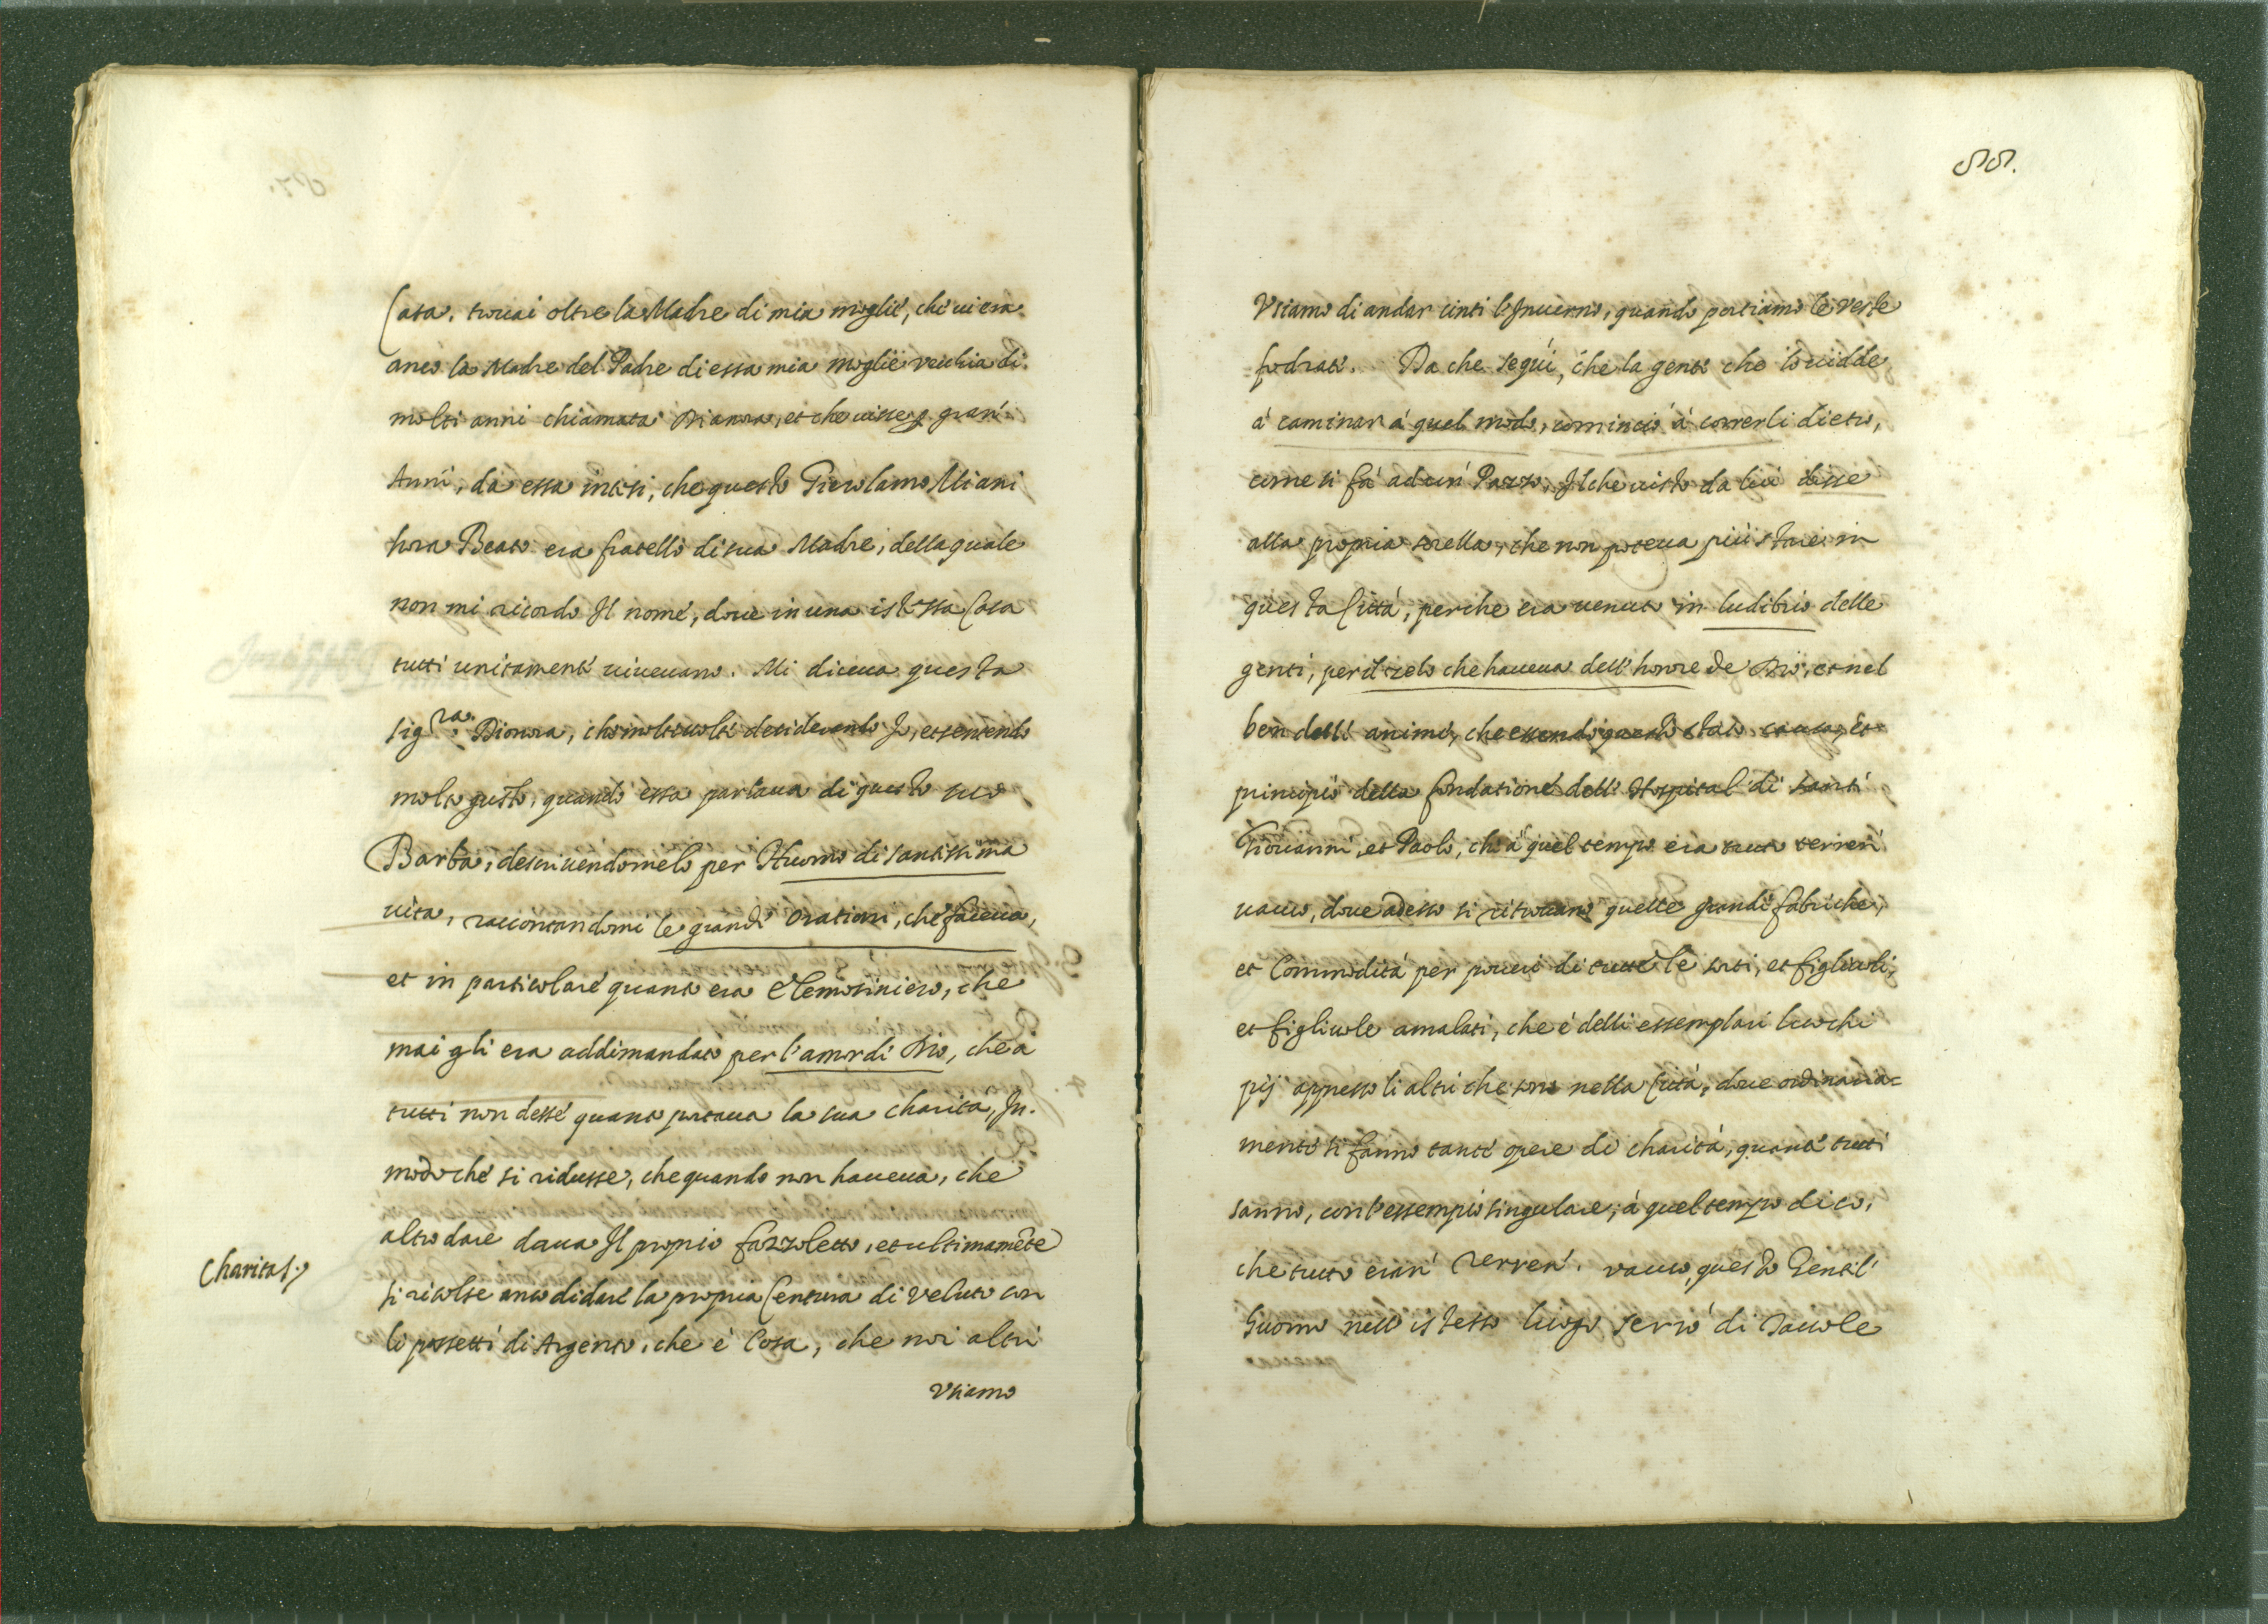 Casa. trouai oltre la Madre di mia moglie, che ui era
anco la Madre del Padre di essa mia moglie vecchia di
molti anni chiamata Dianora, et che uisse p gran'
Anni, da essa intesi, che questo Gierolamo Miani
hora Beato era fratello di sua Madre, della quale
non mi ricordo Il nome, doue in una istessa Casa
tutti unitamente uiueuano. Mi diceua questa
sig.ra Dionora, che molte uolte desiderando Io, et sentendo
molto gusto, quando essa parlaua di questo suo
Barba, descriuendomelo per Huomo di santissima
uita, raccontandomi le grandi Orationi, che faceua,
et in particolare quanto era Elemosiniero, che
mai gli era addimandato per l'amor di Dio, che a
tutti non desse quanto portaua la sua charità, In
modo che si ridusse, che quando non haueua, che
altro dare daua Il proprio fazzoletto, et ultimamẽte
Charitas
si risolse anco di dare la propria Centura di Veluto con
li passetti di Argento, che è Cosa, che noi altri
Vsiamo
55.
Vsiamo di andar cinti l'Inuerno, quando portiamo le Veste
fodrate. Da che seguì, che la gente che lo uidde
à caminar à quel modo, cominciò à correrli dietro,
come si fà ad un' Pazzo, Il che uisto da lui disse
alla propria sorella, che non poteua più stare in
questa Città, perche era uenuto in ludibrio delle
genti, per il zelo che haueua dell' honore de Dio, et nel
ben dell' anime, che essendo questo stato causa, et
principio della fondatione dell' Hospital' di santi
Giouanni, et Paolo, ch' à quel tempo era tutto terren'
uacuo, doue adesso si ritrouano quelle grandi fabriche,
et Commodità per poueri di tutte le sorti, et figliuoli,
et figliuole amalati, che è delli essemplari luochi
pij appresso li altri che sono nella Città, doue ordinaria=
mente si fanno tante opere di charità, quante tutti
sanno, con l'essempio singulare, à quel tempo dico,
che tutto eran' Terren' vacuo, questo Gentil'
huomo nell' istesso luogo serrò di Tauole